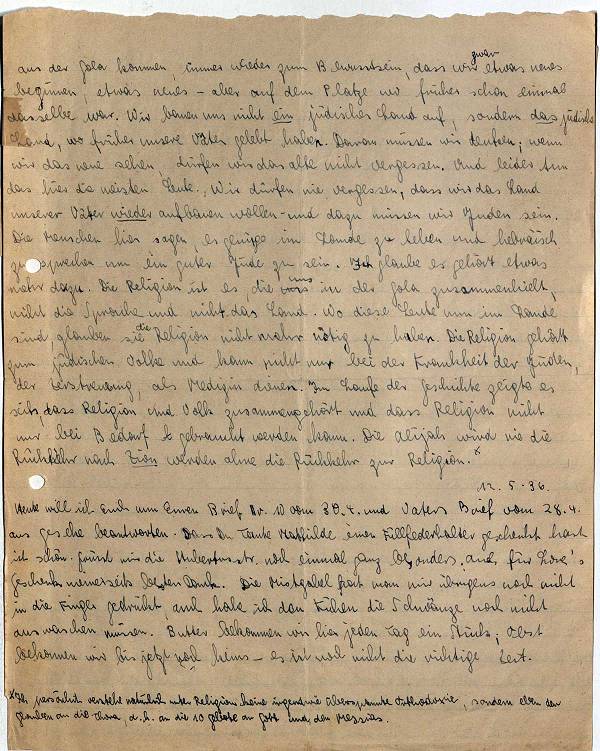 aus der Gola kommen, immer wieder zum Bewusstsein, dass wir zwar etwas neues
beginnen, etwas neues – aber auf dem Platze wo früher schon einmal
dasselbe war. Wir bauen uns nicht ein jüdisches Land auf, sondern das jüdische
Land, wo früher unsere Väter gelebt haben. Daran müssen wir denken; wenn
wir das neue sehen, dürfen wir das alte nicht vergessen. Und leider tun
das hier die meisten Leute. Wir dürfen nie vergessen, dass wir das Land
unserer Väter wieder aufbauen wollen – und dazu müssen wir Juden sein.
Die Menschen hier sagen, es genüge im Lande zu leben und hebräisch
zu sprechen um ein guter Jude zu sein. Ich glaube es gehört etwas
mehr dazu. Die Religion ist es, die uns in der Gola zusammenhielt,
nicht die Sprache und nicht das Land. Wo diese Leute nun im Lande
sind, glauben sie die Religion nicht mehr nötig zu haben. Die Religion gehört
zum jüdischen Volke und kann nicht nur bei der Krankheit der Juden,
der Zerstreuung, als Medizin dienen. Im Laufe der Geschichte zeigte es
sich, dass Religion und Volk zusammengehört und dass Religion nicht
nur bei Bedarf gebraucht werden kann. Die Alijah wird nie die
Rückkehr nach Zion werden ohne die Rückkehr zur Religion.*
12.5.36.
Heute will ich Euch nun Euren Brief Nr. 10 vom und Vaters Brief vom 28.4.
aus beantworten. Dass Du Tante Mathilde einen Füllfederhalter geschenkt hast
ist schön. Grüsst mir die Hubertusstr. noch einmal ganz besonders, auch für Lore's
Geschenk meinerseits besten Dank. Die Mistgabel hat man mir übrigens noch nicht
in die Finger gedrückt, auch habe ich den Kühen die Schwänze noch nicht
auswaschen müssen. Butter bekommen wir hier jeden Tag ein Stück; Obst
bekommen wir bis jetzt noch keins – es ist noch nicht die richtige Zeit.
*Ich persönlich verstehe natürlich unter Religion keine irgendwie überspannte Orthodoxie, sondern eben den
Glauben an die Thora, d.h. an die 10 Gebote an Gott und den Messias.